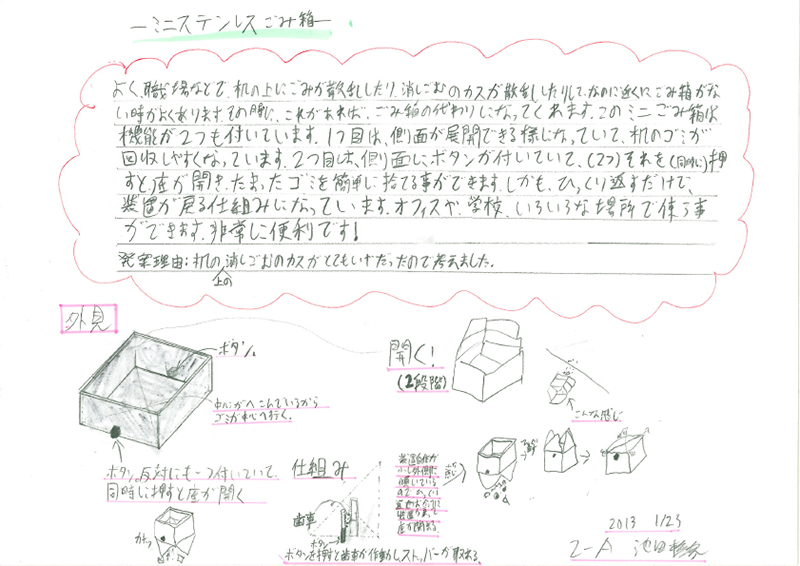 ーミニステンレスごみ箱ー
よく、職場などで、机の上にごみが散乱したり、消しごむのカスが散乱したりして、なのに近くにごみ箱がな
い時がよくあります。その時に、これがあれば、ごみ箱の代わりになってくれます。このミニごみ箱は、
機能が2つも付いています。1つ目は、側面が展開できる様になっていて、机のゴミが
回収しやすくなっています。2つ目は、側面にボタンが付いていて、(2つ)それを(同時に)押
すと、底が開き、たまったゴミを簡単に捨てる事ができます。しかも、ひっくり返すだけで、
装置が戻る仕組みになっています。オフィスや、学校、いろいろな場所で使う事
ができます。非常に便利です!
発案理由:机の上の消しごむのカスがとてもいやだったので考えました。
外見
ボタン
中心がへこんでいるから
ゴミが中心へ行く。
開く!
(2段階)
こんな感じ
ボタン。反対にも一つ付いていて、
同時に押すと底が開く
カチッ
仕組み
歯車
ボタン
ボタンを押すと歯車が作動しストッパーが取れる。
装置自体が
少し外側に
傾いている
底が閉まる
2013 1/23
2-A 池田